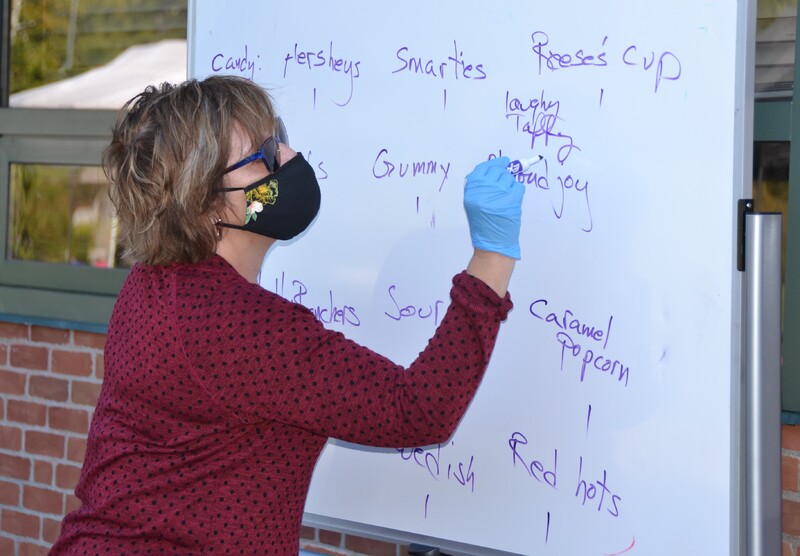 Candy: Hersheys Smarties Reese's Cup
Laughy
Taffy
Gummy joy
Ranchers Sour Caramel
Popcorn
Red hots